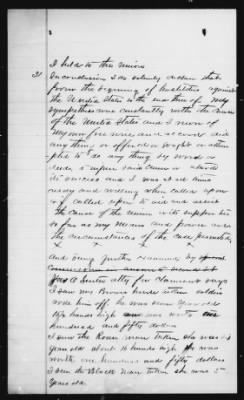 I held to the union
31 In conclusion I do solemnly declare that
from the beginning of hostilities against
the United States to the end there of my
sympathies was constantly with the cause
of the United States and I never of
my own free will and accord did
any thing or offered or sought or attem
pted to do any thing by word or
deed to injure said cause or retard
its success and I was at all times
ready and willing when called upon
or if called upon to aid and assist
the cause of the union with supplies his
so far as my means and power and
the circumstances of the case permitted
x x x
And being further examined by
Jas A Senter atty for claimant says
I saw Mrs Browns horse when soldiers
rode him off, he was seven years old
15½ hands high was worth one
hundred and fifty dollars
I saw the Roan mare taken she was 4
years old about 16 hands high was
worth one hundred and fifty dollars
I saw the Black mare taken she was 5
years old.